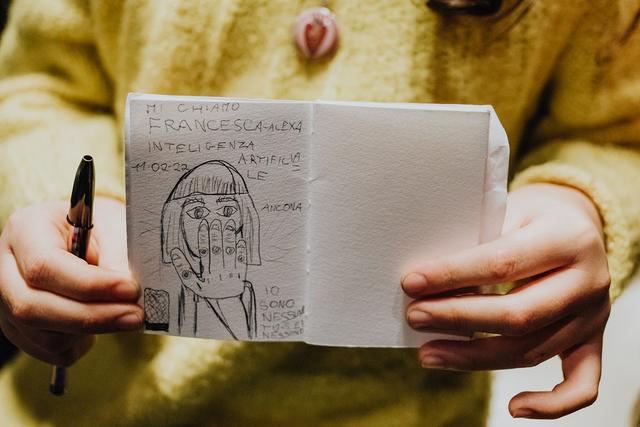 MI CHIAMO
FRANCESCA-ALEXA
INTELIGENZA
ARTIFICIA
LE
11-02-22
ANCONA
IO
SONO
NESSUN
TU SEI
NESSUNO